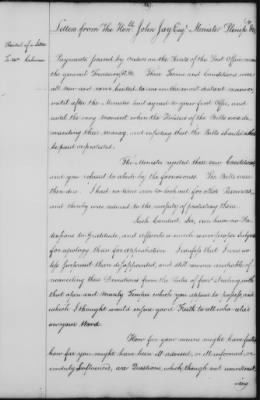 Letters from The Hon.ble John Jay Esq.r Minister Plenip.o &c
Recital of a Letter
To Mr Cabarrus
Payments formed by Orders on the Rents of the Post Office
the general Treasury &c. These Terms and Conditions were
all new and
until after the Minister had agreed to your first Offer, and
until the very Moment when the Holders of the Bills were de-
manding their Money, and insisting that the Bills should either
be paid or protested.
The Minister rejected these new Conditions,
and you refused to abide by the former ones. The Bills were
then due. I had no time to look out for other Resources,
and thereby was reduced to the necessity of protesting them.
Such Conduct, Sir, can have no Pre-
tensions to Gratitude, and affords a much more proper Subject
for apology than for approbation. I confess that I was no
less surprised than disappointed, and still remain incapable of
reconciling these Deviations from the Rules of fair Dealing with
that open and manly Temper which you appear to possess, and
which I thought would insure good Faith to all who relied
on your Word.
How far your union might have
how far you might have been ill advised, or ill informed, or
unduly Influenced, are Questions, which though not